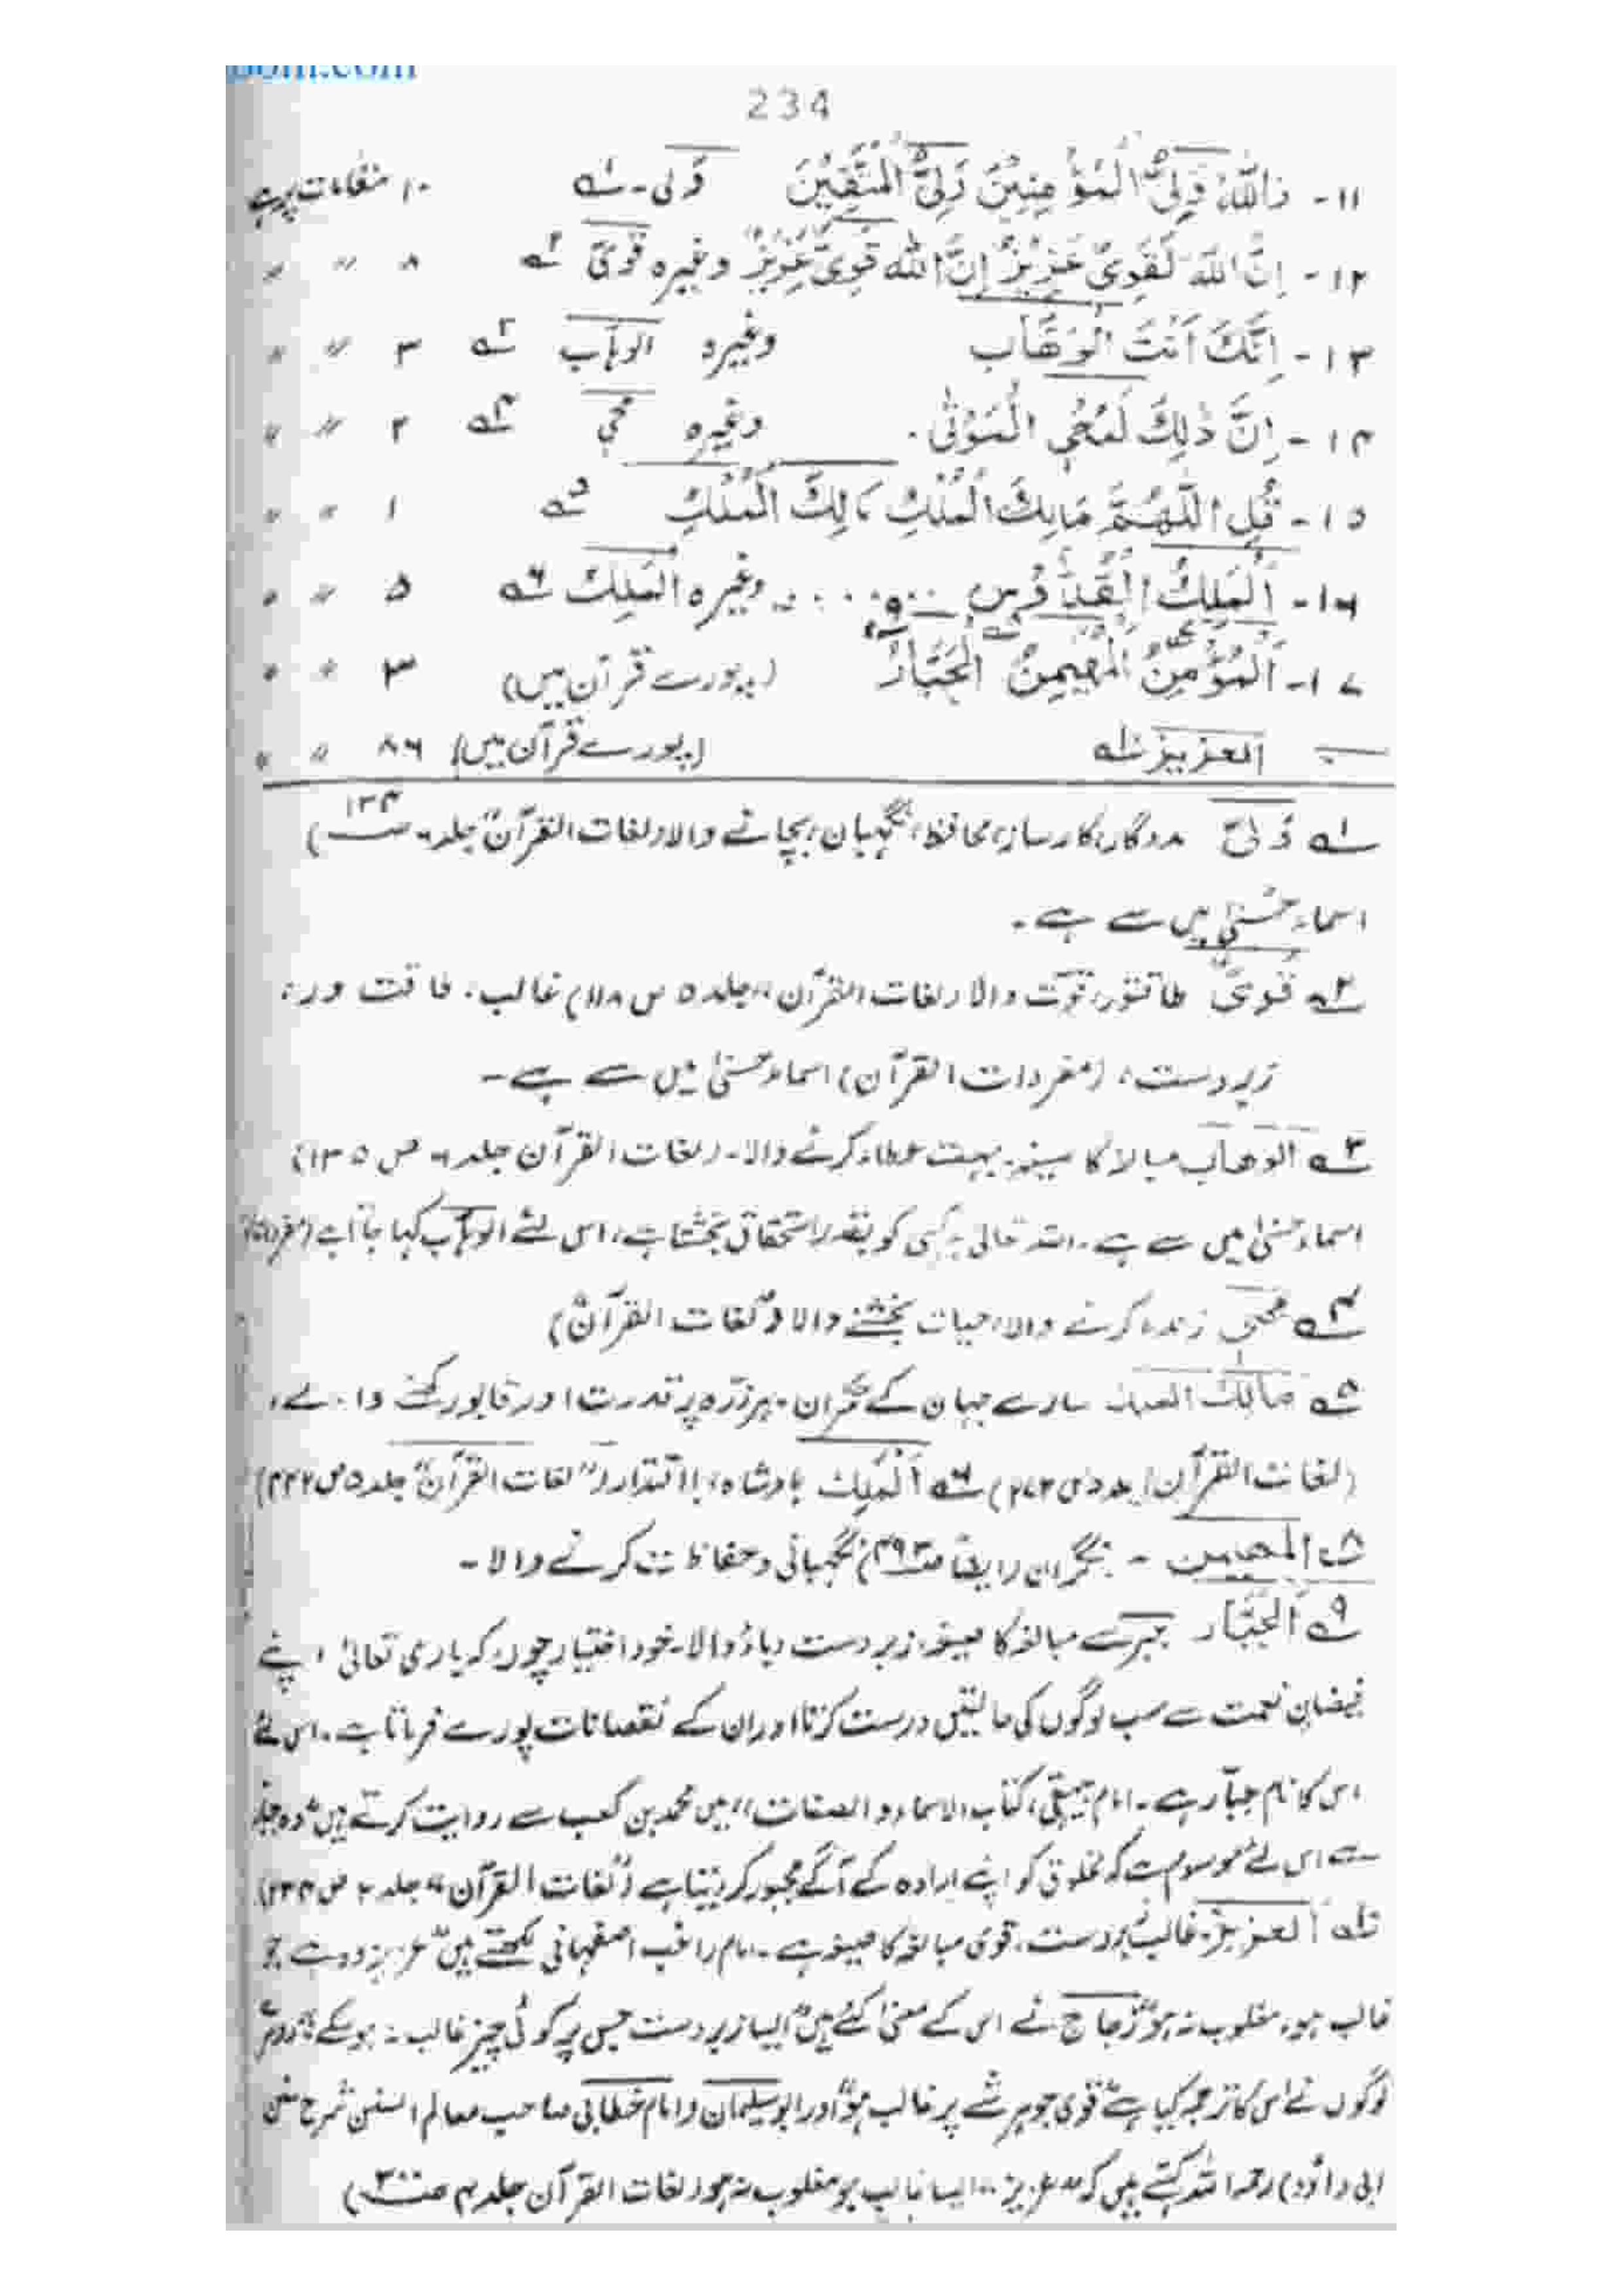 234
۱۱- وَاللّٰهُ وَلِيُّ الْمُؤْمِنِيْنَ وَلِيُّ الْمُتَّقِيْنَ وَلی۔ ۱ ۱۰ مقامات پر ہے
۱۲- اِنَّ اللهَ لَقَوِیٌ عَزِيْزٌ اِنَّ الله قَوِیٌّ عَزِيْزٌ وغیرہ قَوِیّ ۲ ۸ 〃 〃
۱۳- اِنَّكَ اَنْتَ الْوَهَّاب وغیرہ الوہاب ۳ ۳ 〃 〃
۱۴- اِنَّ ذٰلِكَ لَمُحْیِ الْمَوْتٰی۔ وغیرہ محی ۴ ۲ 〃 〃
۱۵- قُلِ اللّٰهُمَّ مَالِكَ الْمُلْكِ مَالِكَ الْمُلْكِ ۵ ۱ 〃 〃
۱۶- اَلْمَلِكُ الْقُدُّوْس ..... وغیرہ الْمَلِك ۶ ۵ 〃 〃
۱۷- اَلْمُؤْمِنُ الْمُهَيْمِنُ الْجَبَّارُ (پورے قرآن میں) ۳ 〃 〃
العزیز ۱۰ (پورے قرآن میں) ۸۶ 〃 〃
۱ وَلیّ مددگار، کارساز، محافظ، نگہبان، بچانے والا (لغات القرآن" جلد ۶ ص ۱۳۴)
اسماء حُسنیٰ میں سے ہے۔
۲ قَوِیّ طاقتور، قوّت والا (لغات القرآن" جلد ۵ ص ۱۱۸) غالب، طاقت ور،
زبردست، (مفردات القرآن) اسماء حسنیٰ میں سے ہے۔
۳ الوهاب مبالغہ کا صیغہ۔ بہت عطاء کرنے والا۔ (لغات القرآن جلد ۶ ص ۱۳۵)
اسماء حسنیٰ میں سے ہے۔ اللہ تعالیٰ ہر کسی کو بقدر استحقاق بخشتا ہے، اس لئے الوہاب کہا جاتا ہے (مفردات)
۴ محی زندہ کرنے والا، حیات بخشنے والا ("لغات القرآن")
۵ مالك الملك سارے جہان کے حکمران۔ ہر ذرّہ پر قدرت اور قابو رکھنے والے،
(لغات القرآن جلد ۵ ص ۲۷۳) ۶ اَلْمَلِك بادشاہ، با اقتدار ("لغات القرآن" جلد ۵ ص ۴۴۲)
۸ المهيمن - نگران (ایضاً ص ۴۹۳) نگہبانی و حفاظت کرنے والا۔
۹ اَلْجَبَّار جبر سے مبالغہ کا صیغہ، زبردست دباؤ والا۔ خود اختیار چوں کہ باری تعالیٰ اپنے
فیضانِ نعمت سے سب لوگوں کی حالتیں درست کرتا اور ان کے نقصانات پورے فرماتا ہے۔ اس لئے
اس کا نام جبّار ہے۔ امام بیہقی، کتاب الاسماء و الصفات" میں محمد بن کعب سے روایت کرتے ہیں "وہ جبار
سے اس لئے موسوم ہے کہ مخلوق کو اپنے ارادہ کے آگے مجبور کر دیتا ہے ("لغات القرآن" جلد ۲ ص ۲۳۴)
۱۰ العزیز۔ غالب، زبردست، قوی مبالغہ کا صیغہ ہے۔ امام راغب اصفہانی لکھتے ہیں "عزیز وہ ہے جو
غالب ہو، مغلوب نہ ہو" زجاج نے اس کے معنیٰ کئے ہیں "ایسا زبردست جس پر کوئی چیز غالب نہ ہو سکے" دوسرے
لوگوں نے اس کا ترجمہ کیا ہے "قوی جو ہر شے پر غالب ہو" اور ابو سلیمان (امام خطابی صاحب معالم السنن شرح سنن
ابی داؤد) رحمہ اللہ کہتے ہیں کہ "عزیز" ایسا غالب جو مغلوب نہ ہو (لغات القرآن جلد ۴ ص ۳۰۰)